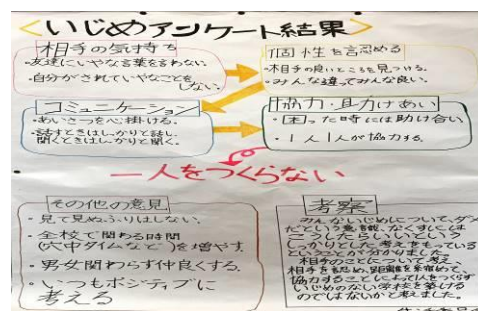 いじめアンケート結果
相手の気持ち
・友達にいやな言葉を言わない。
・自分がされていやなことを
しない。
個性を認める
・相手の良いところを見つける。
・みんな違ってみんな良い。
コミュニケーション
・あいさつを心掛ける。
・話すときはしっかりと話し、
聞くときはしっかりと聞く。
協力・助けあい
・困った時には助け合い
・1人1人が協力する。
一人をつくらない
その他の意見
・見て見ぬふりはしない。
・全校で関わる時間
(穴中タイムなど)を増やす
・男女関わらず仲良くする。
・いつもポジティブに
考える
考察
みんないじめについて、ダメ
だという意識、なくすには
こうしたらいいという
しっかりとした考えをもっている
ということが分かりました。
相手のことについて考え、
相手を認め、距離を縮めて、
協力することによって1人をつくらず
いじめのない学校を築ける
のではないかと考えました。